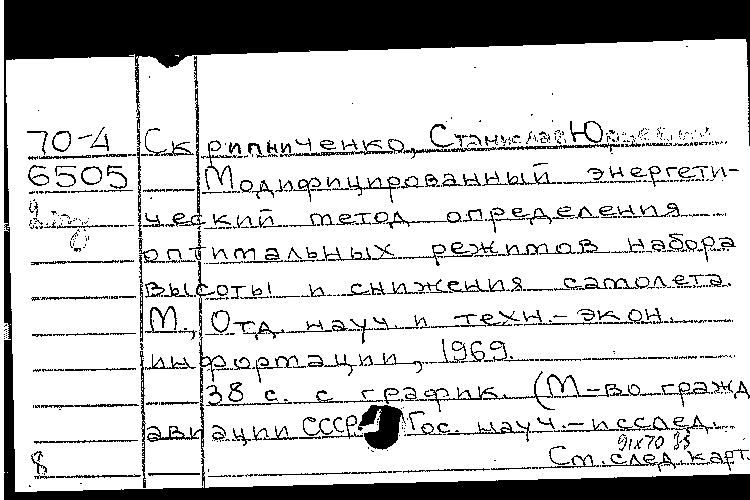 70-4 Скрипниченко, Станислав Юрьевич
6505 Модифицированный энергети-
ческий метод определения
оптимальных режимов набора
высоты и снижения самолета.
М., Отд. науч. и техн.-экон.
информации, 1969.
38 с. с график. (М-во гражд
авиации СССР Гос. науч.-исслед.
91х70 
8 См. след. карт.